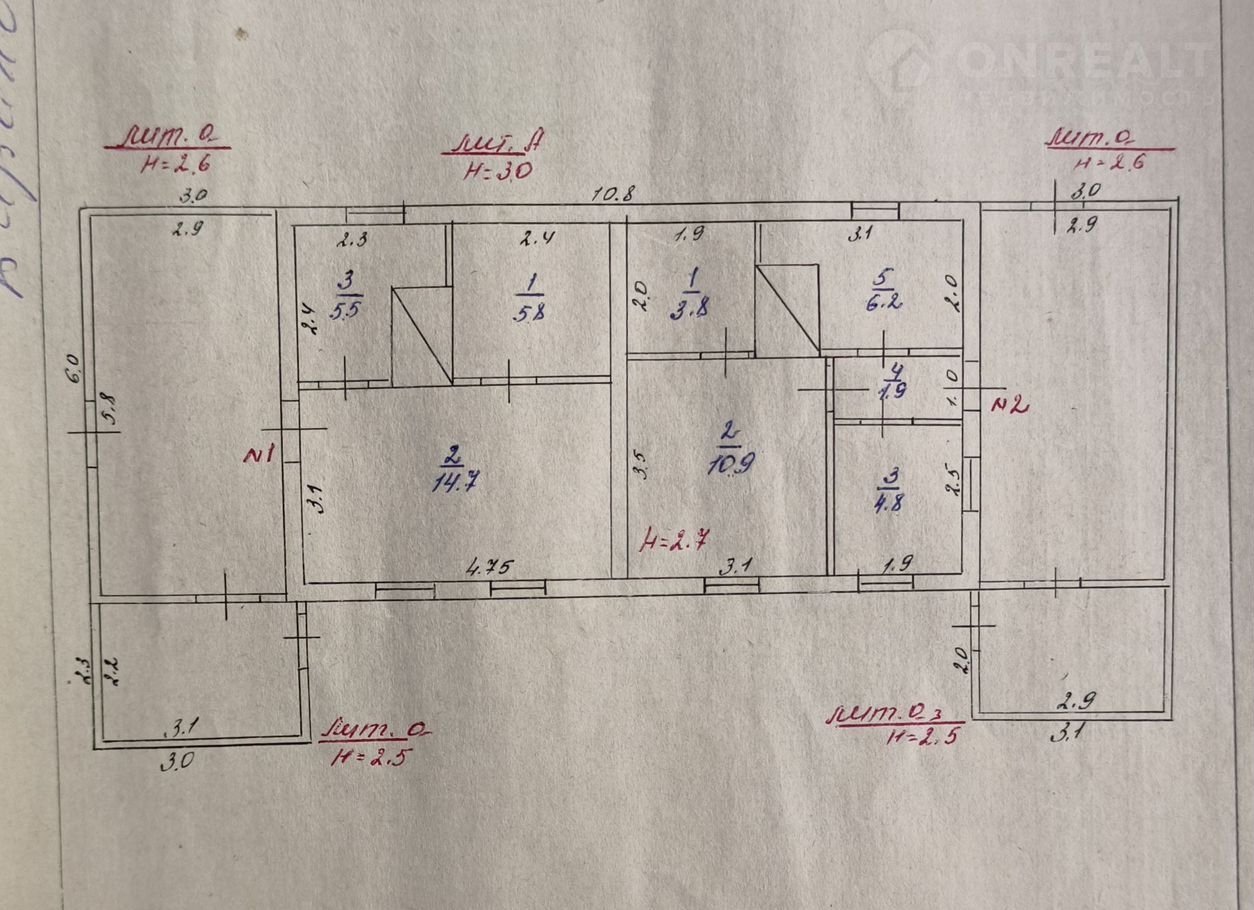 ONREALT
НЕДВИЖИМОСТЬ
лит. а
H=2.6
лит. А
H=3.0
лит. а
H=2.6
3.0
10.8
3.0
2.9
2.3
2.4
1.9
3.1
2.9
3
5.5
1
5.8
2.0
1
3.8
5
6.2
2.0
2.4
6.0
5.8
4
1.9
1.0
N2
N1
2
14.7
3.1
3.5
2
10.9
3
4.8
2.5
H=2.7
4.75
3.1
1.9
2.3
2.2
2.0
3.1
3.0
лит. а
H=2.5
лит. а3
H=2.5
2.9
3.1